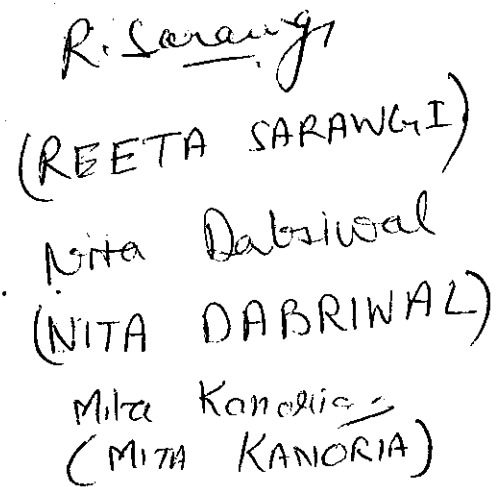 R. Sarawgi
(REETA SARAWGI)
Nita Dabriwal
(NITA DABRIWAL)
Mita Kanoria
(MITA KANORIA)